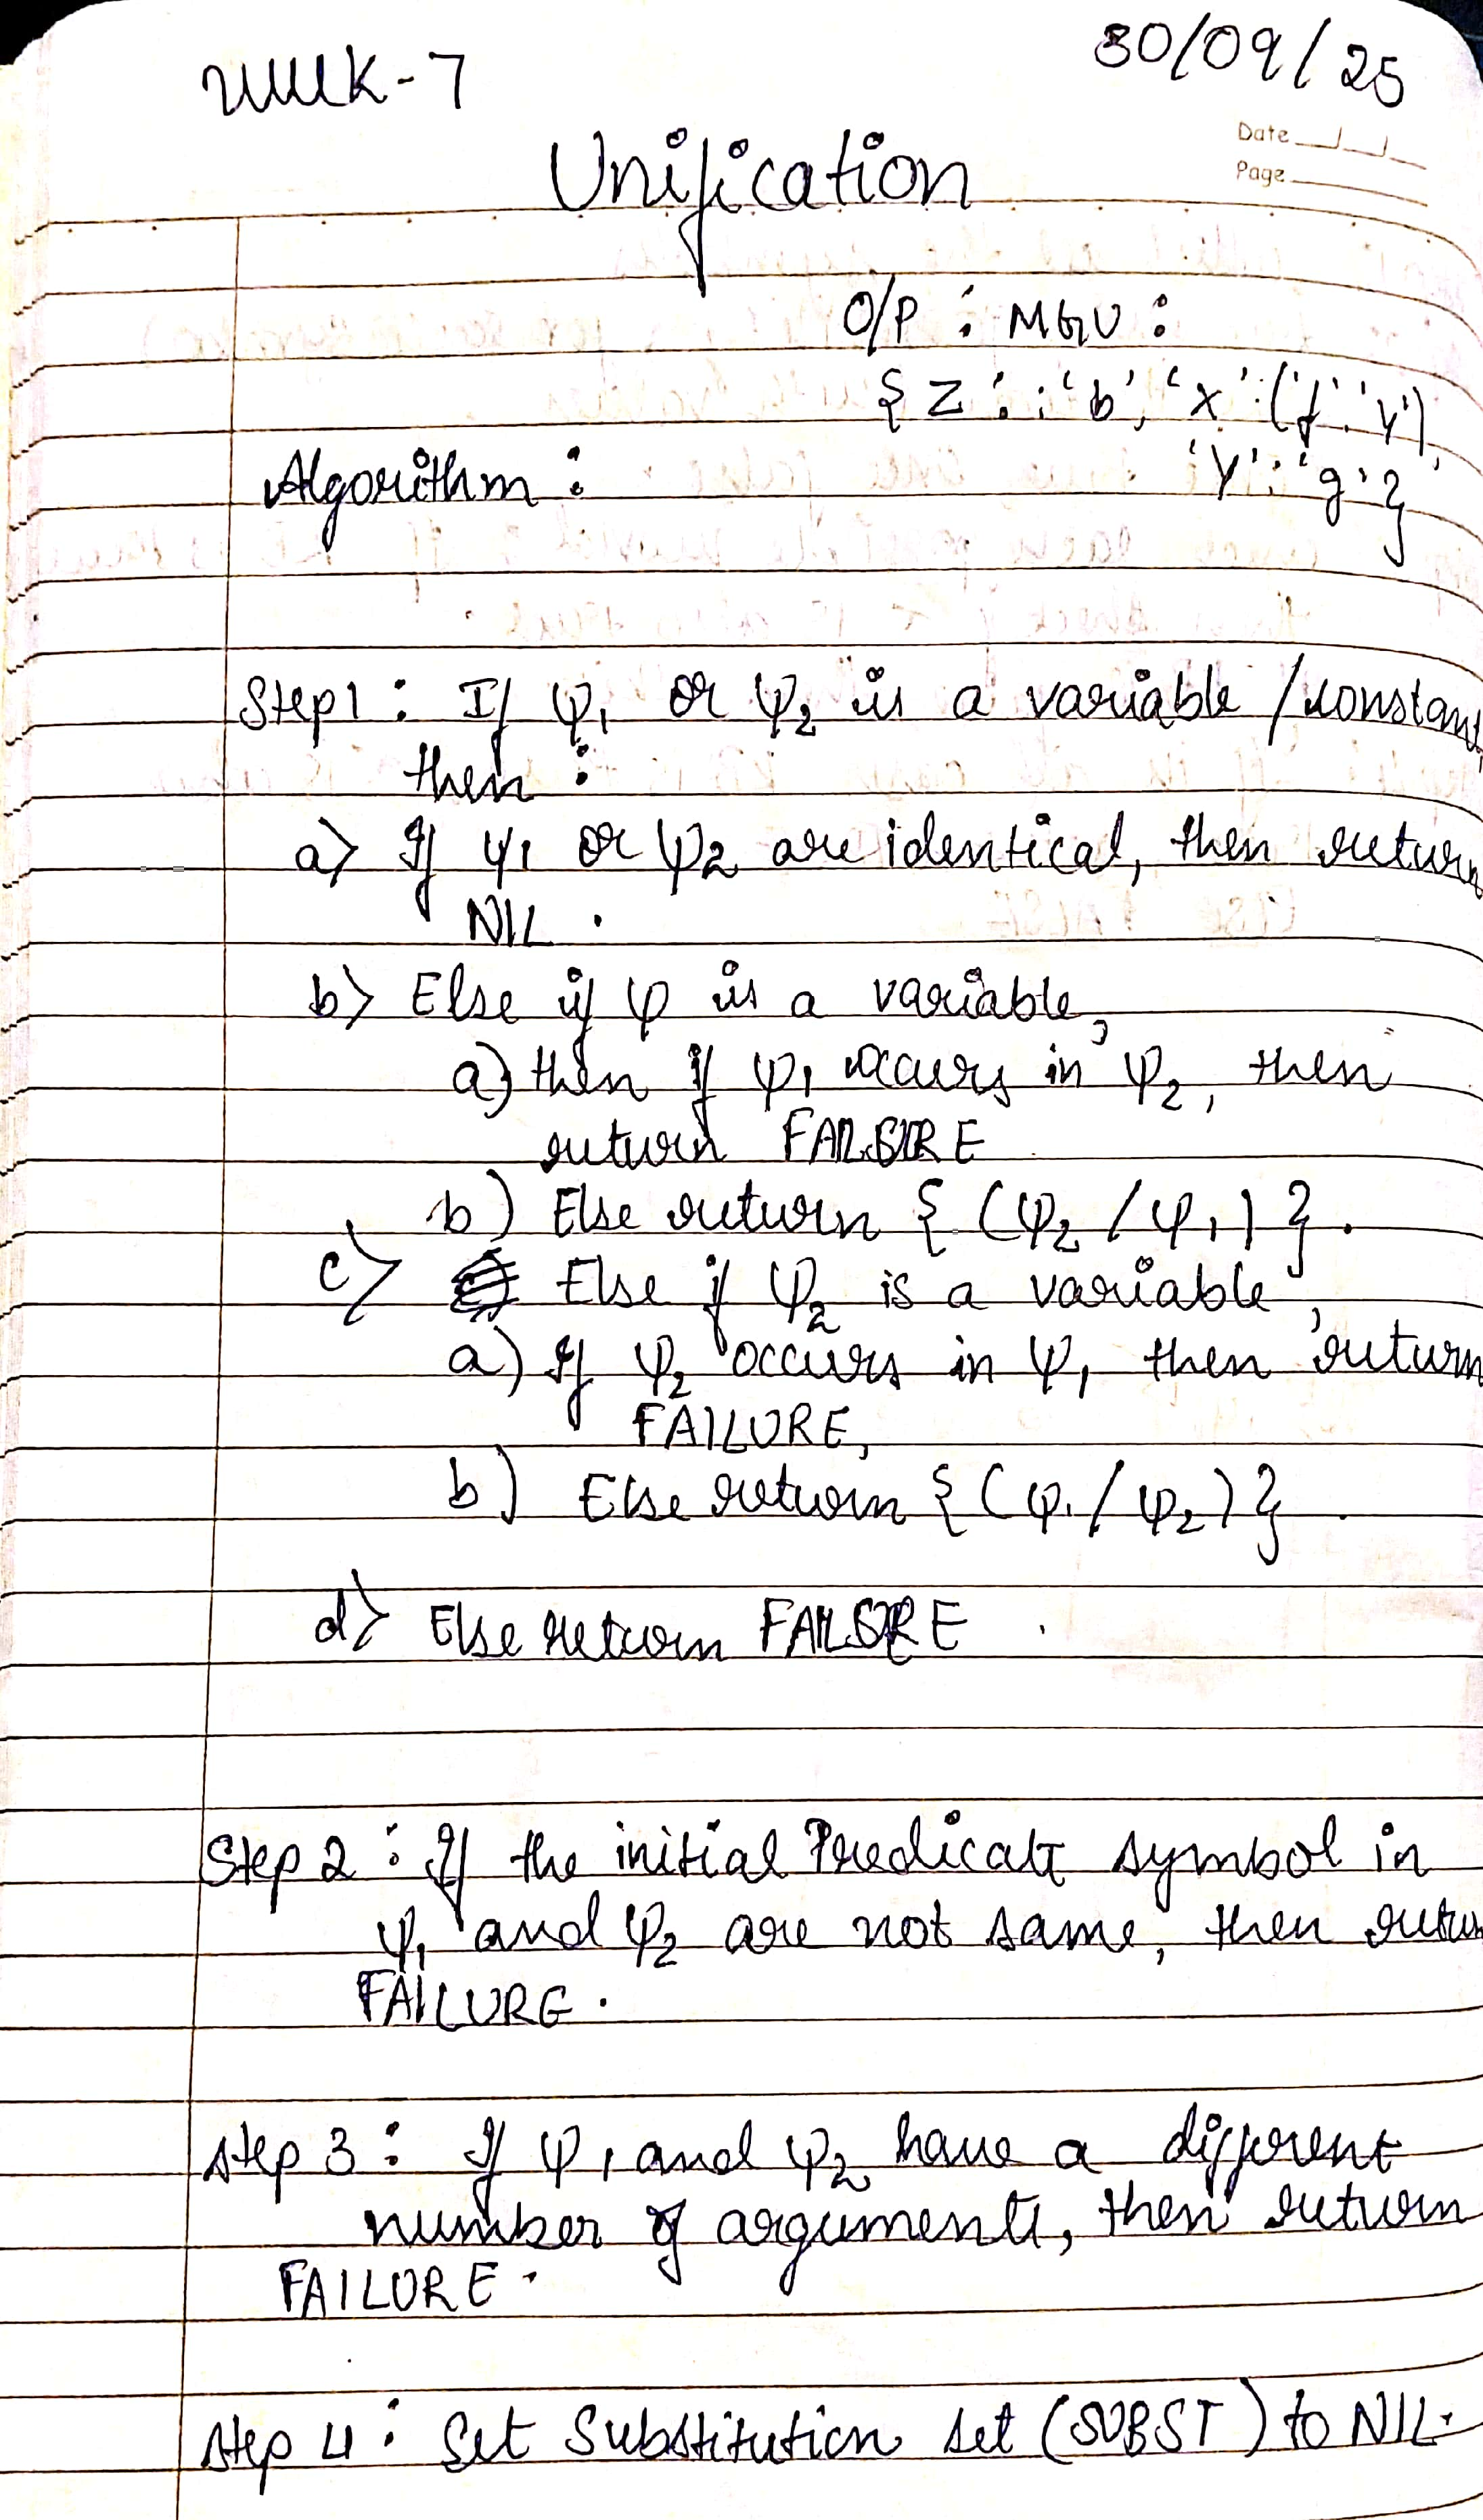 WEEK-7
30/09/25
Date
Page
Unification
O/P : MGU :
{ Z : : 'b', 'x' : ('f' 'y'),
'Y' : 'g' }
Algorithm :
Step1 : If Ψ1 or Ψ2 is a variable /constant,
then :
a> If Ψ1 or Ψ2 are identical, then return
NIL .
b> Else if Ψ is a variable,
a) then if Ψ1 occurs in Ψ2, then
return FAILURE
b) Else return { (Ψ2 / Ψ1) } .
c> Else if Ψ2 is a variable,
a) If Ψ2 occurs in Ψ1 then return
FAILURE,
b) Else return { (Ψ1 / Ψ2) }
d> Else return FAILURE .
Step 2 : If the initial Predicate symbol in
Ψ1 and Ψ2 are not same, then return
FAILURE .
Step 3 : If Ψ1 and Ψ2 have a different
number of arguments, then return
FAILURE .
Step 4 : Set Substitution set (SUBST) to NIL.